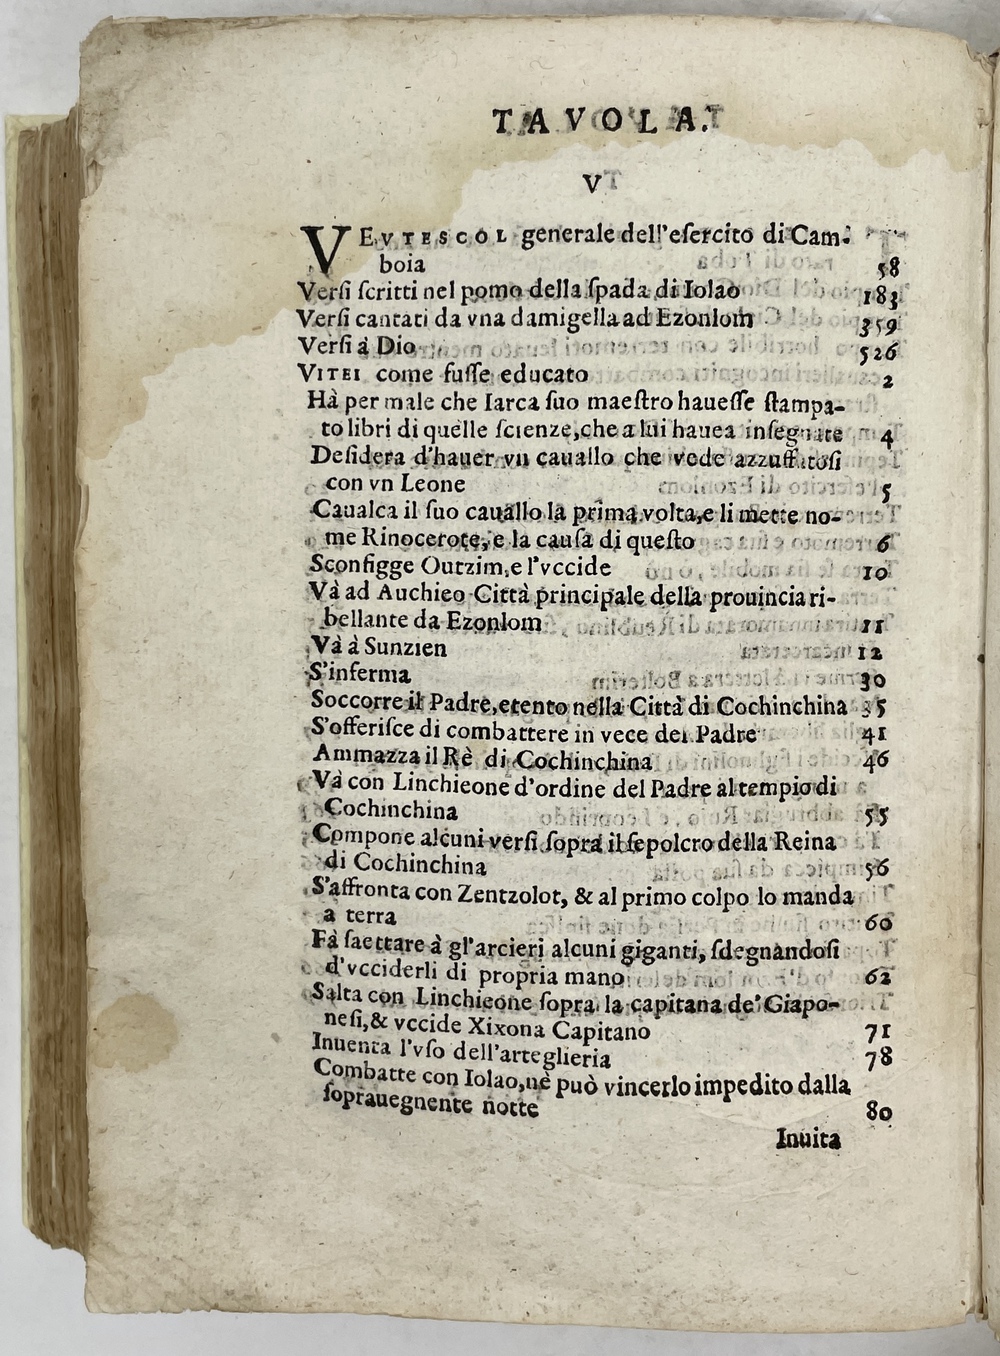 TAVOLA.
V
VEVTESCOL generale dell'eſercito di Cam-
boia 58
Verſi ſcritti nel pomo della ſpada di Iolao 183
Verſi cantati da vna damigella ad Ezonlom 359
Verſi à Dio 526
VITEI come fuſſe educato 2
Hà per male che Iarca ſuo maeſtro haueſſe ſtampa-
to libri di quelle ſcienze, che a lui hauea inſegnate 4
Deſidera d'hauer vn cauallo che vede azzuffatoſi
con vn Leone 5
Caualca il ſuo cauallo la prima volta, e li mette no-
me Rinocerote, e la cauſa di queſto 6
Sconfigge Outzim, e l'vccide 10
Và ad Auchieo Città principale della prouincia ri-
bellante da Ezonlom 11
Và à Sunzien 12
S'inferma 30
Soccorre il Padre, etento nella Città di Cochinchina 35
S'offeriſce di combattere in vece del Padre 41
Ammazza il Rè di Cochinchina 46
Và con Linchieone d'ordine del Padre al tempio di
Cochinchina 55
Compone alcuni verſi ſopra il ſepolcro della Reina
di Cochinchina 56
S'affronta con Zentzolot, & al primo colpo lo manda
a terra 60
Fà ſaettare à gl'arcieri alcuni giganti, ſdegnandoſi
d'vcciderli di propria mano 62
Salta con Linchieone ſopra la capitana de' Giapo-
neſi, & vccide Xixona Capitano 71
Inuenta l'vſo dell'arteglieria 78
Combatte con Iolao, nè può vincerlo impedito dalla
ſoprauegnente notte 80
Inuita